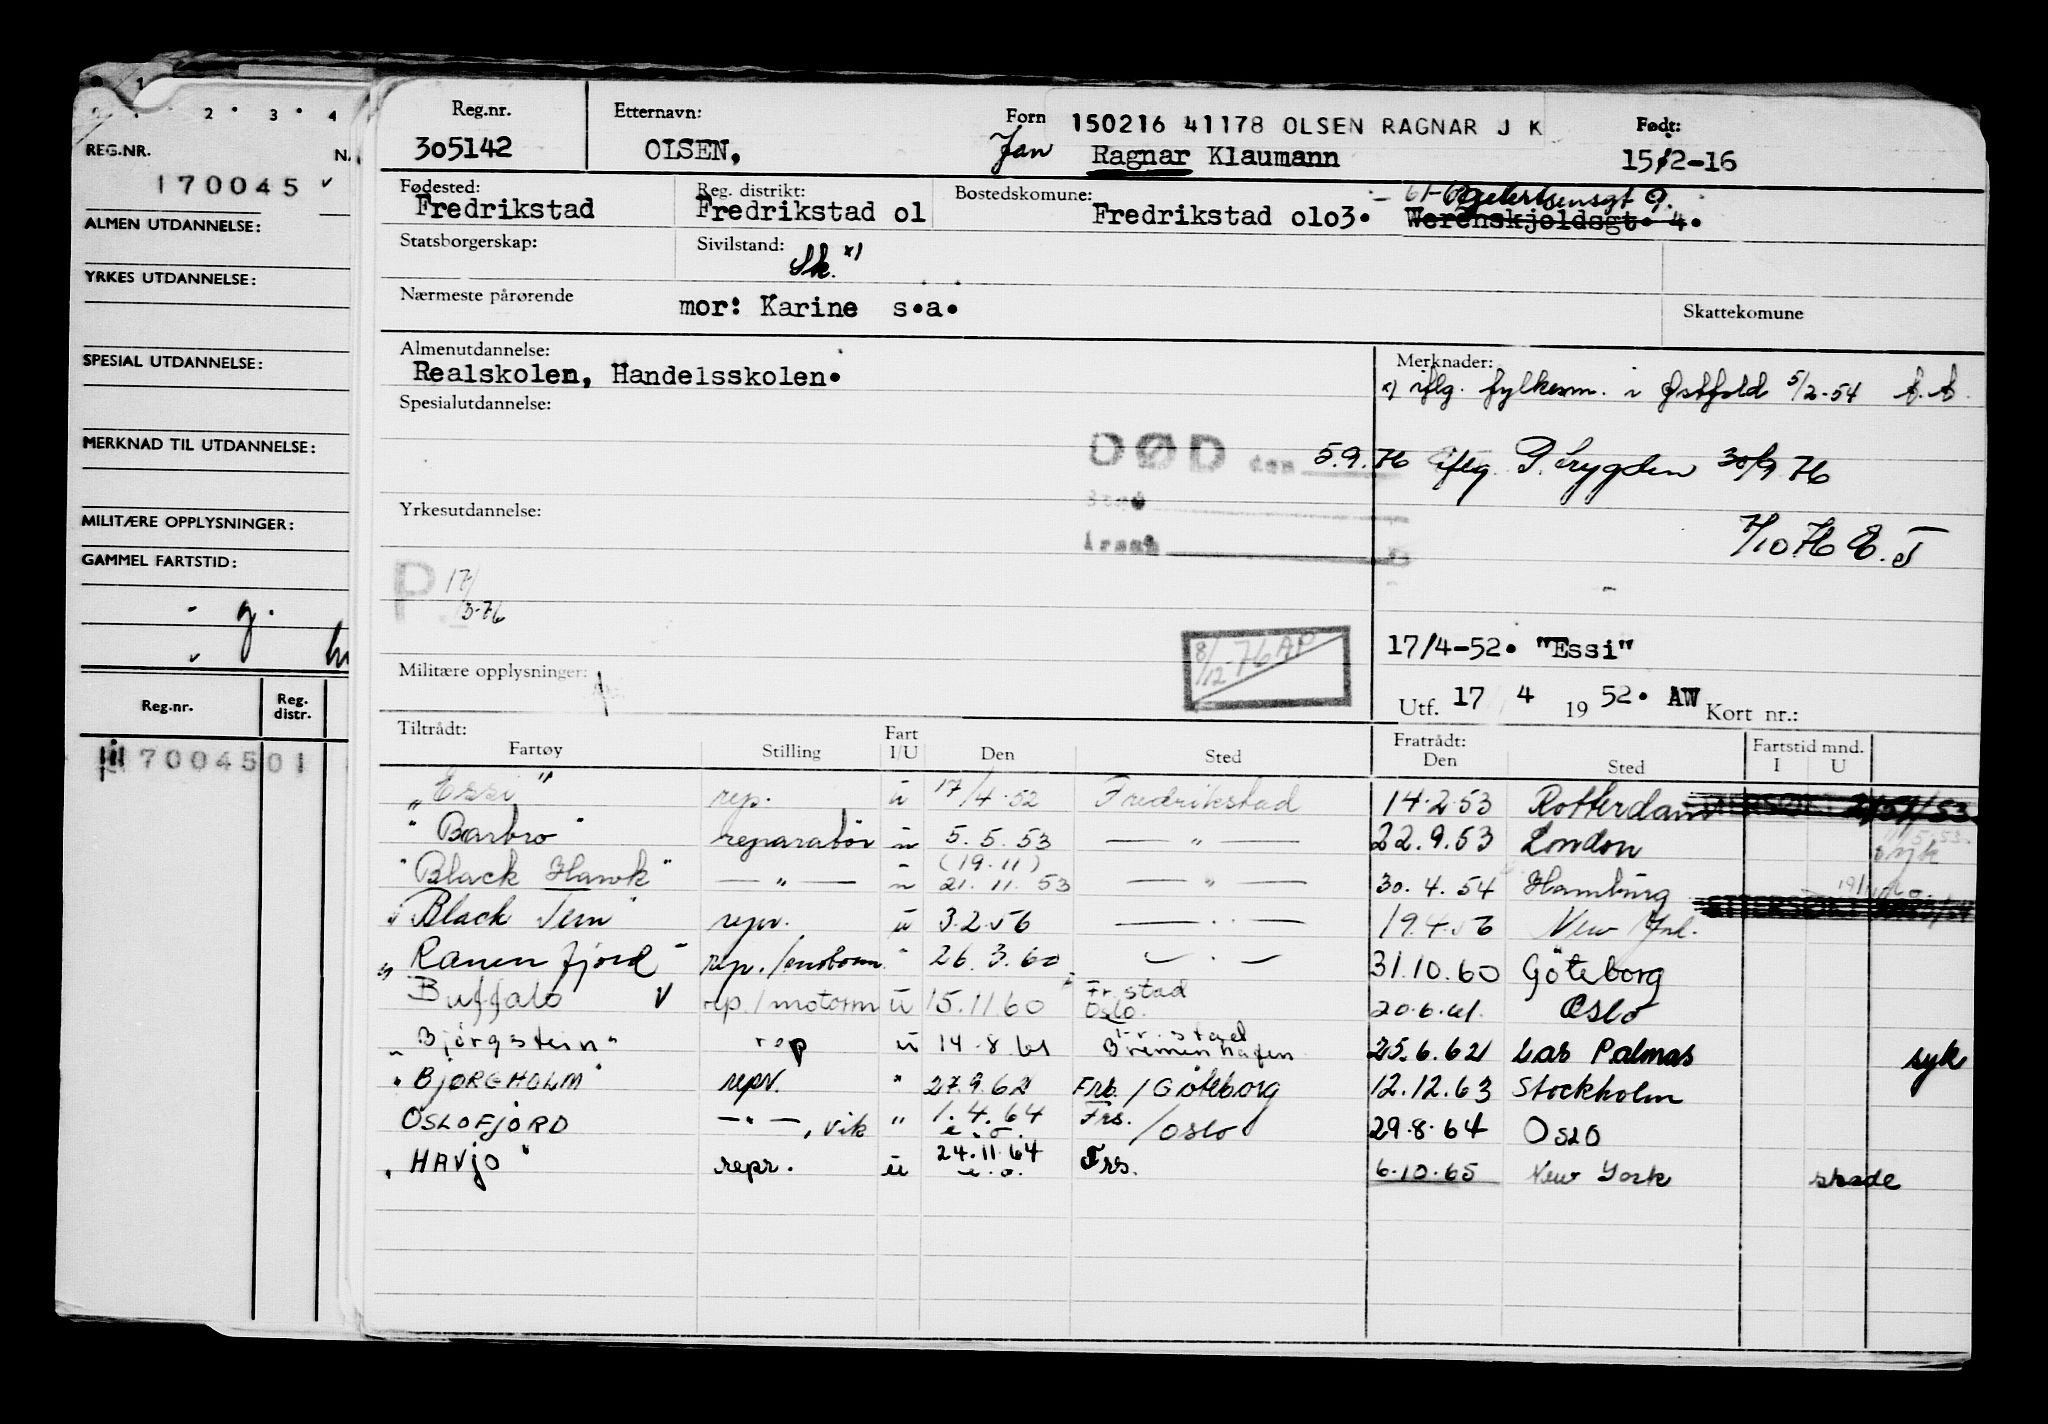 1
2 • 3 • 4
REG.NR.
170045
ALMEN UTDANNELSE:
YRKES UTDANNELSE:
SPESIAL UTDANNELSE:
MERKNAD TIL UTDANNELSE:
MILITÆRE OPPLYSNINGER:
GAMMEL FARTSTID:
Reg.nr. Reg. distr.
7004501
Reg.nr. Etternavn: Forn 150216 41178 OLSEN RAGNAR J K Født:
305142 OLSEN, Jan Ragnar Klaumann 15/2-16
Fødested: Reg. distrikt: Bostedskomune:
Fredrikstad Fredrikstad 01 Fredrikstad 0103. Werenskjoldsgt. 4.
Statsborgerskap: Sivilstand: Sk. x)
Nærmeste pårørende mor: Karine s.a. Skattekomune
Almenutdannelse: Merknader:
Realskolen, Handelsskolen. x) iflg. fylkesm. i Østfold 5/2-54
Spesialutdannelse:
DØD den 5.9.76 iflg. P. Trygden 30/9 76
Sted
Årsak
Yrkesutdannelse: 7/10 76 E.T
P 17/3-76
8/12-76 AP
17/4-52. "Essi"
Militære opplysninger:
Utf. 17 4 1952. AW Kort nr.:
Tiltrådt: Fratrådt: Fartstid mnd.
Fartøy Stilling Fart I/U Den Sted Den Sted I U
"Essi" rep. u 17/4-52 Fredrikstad 14-2-53 Rotterdam
"Barbro" reparatør u 5.5.53 — " — 22.9.53 London syk
(19.11)
"Black Hawk" — " — u 21.11.53 — " — 30.4.54 Hamburg
ETTERSØKT
"Black Tern" repr. u 3.2.56 — " — 19.4.56 New York.
"Ranenfjord" rep./motorm. " 26.3.60 — " — 31.10.60 Göteborg
Buffalo v rep/motorm u 15.11.60 Fr.stad Oslo. 20.6.61. Oslo
"Bjørgstein" rep u 14-8-61 Fr.stad Bremenhafen 25.6.62 Las Palmas syk
"BJØRGHOLM" repr. " 27.9.62 Frb./Göteborg 12.12.63 Stockholm
OSLOFJORD — " —, vik " 1.4.64 e.o. Frs./Oslo 29.8.64 Oslo
"HAVJO" repr. u 24.11.64 e.o. Frs. 6.10.65 New York skade